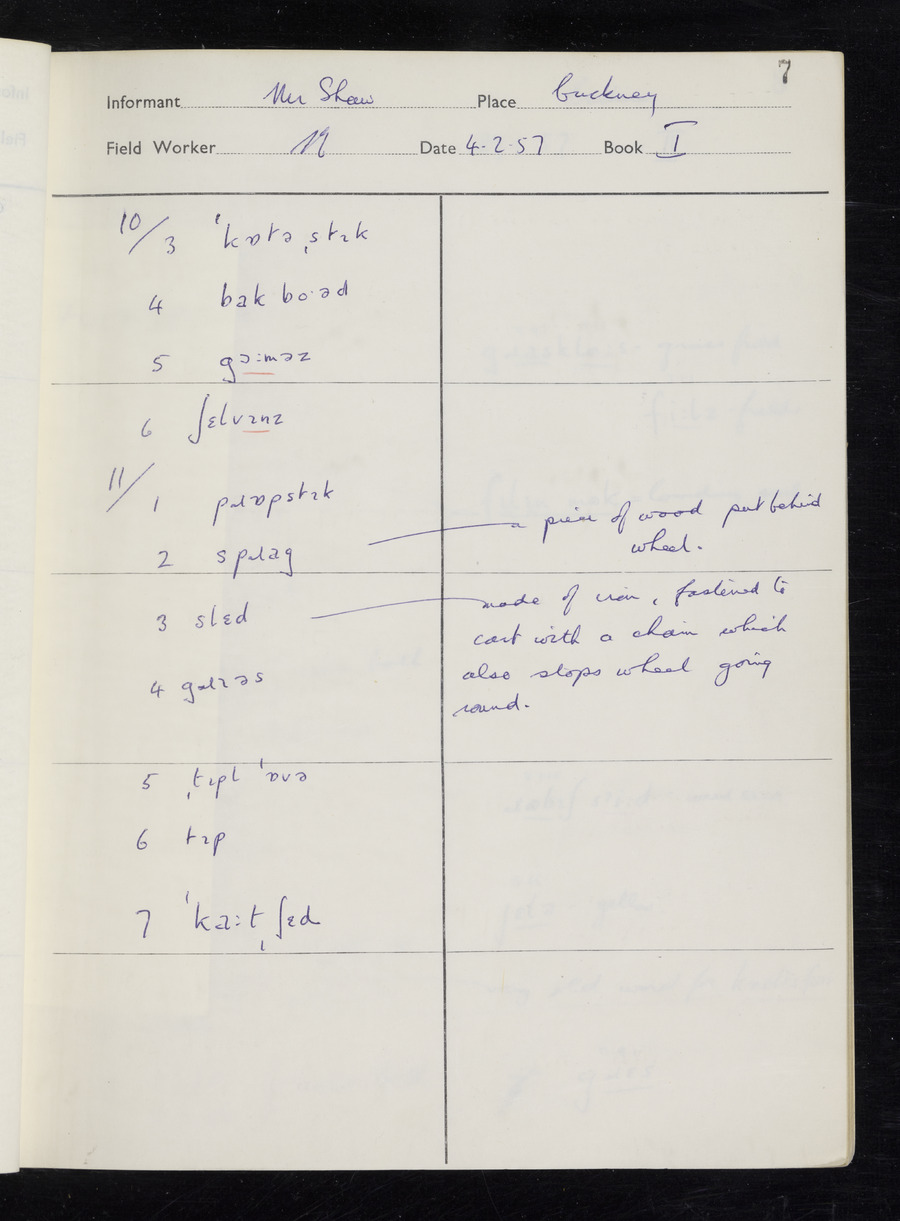 7
Informant Mr Shaw Place Cuckney
Field Worker Date 4-2-57 Book I
10/3 ˈkɒtəˌstɪk
4 bak bɔ·əd
5 gɔ:məz
6 ʃɛlvɪnz
11/1 pɹɒpstɪk
2 spɹag
a piece of wood put behind
wheel.
3 slɛd
made of iron, fastened to
cart with a chain which
also stops wheel going
round.
4 gɹɪəs
5 ˌtɪpl ˈɒvə
6 tɪp
7 ˈka:tˌʃɛd